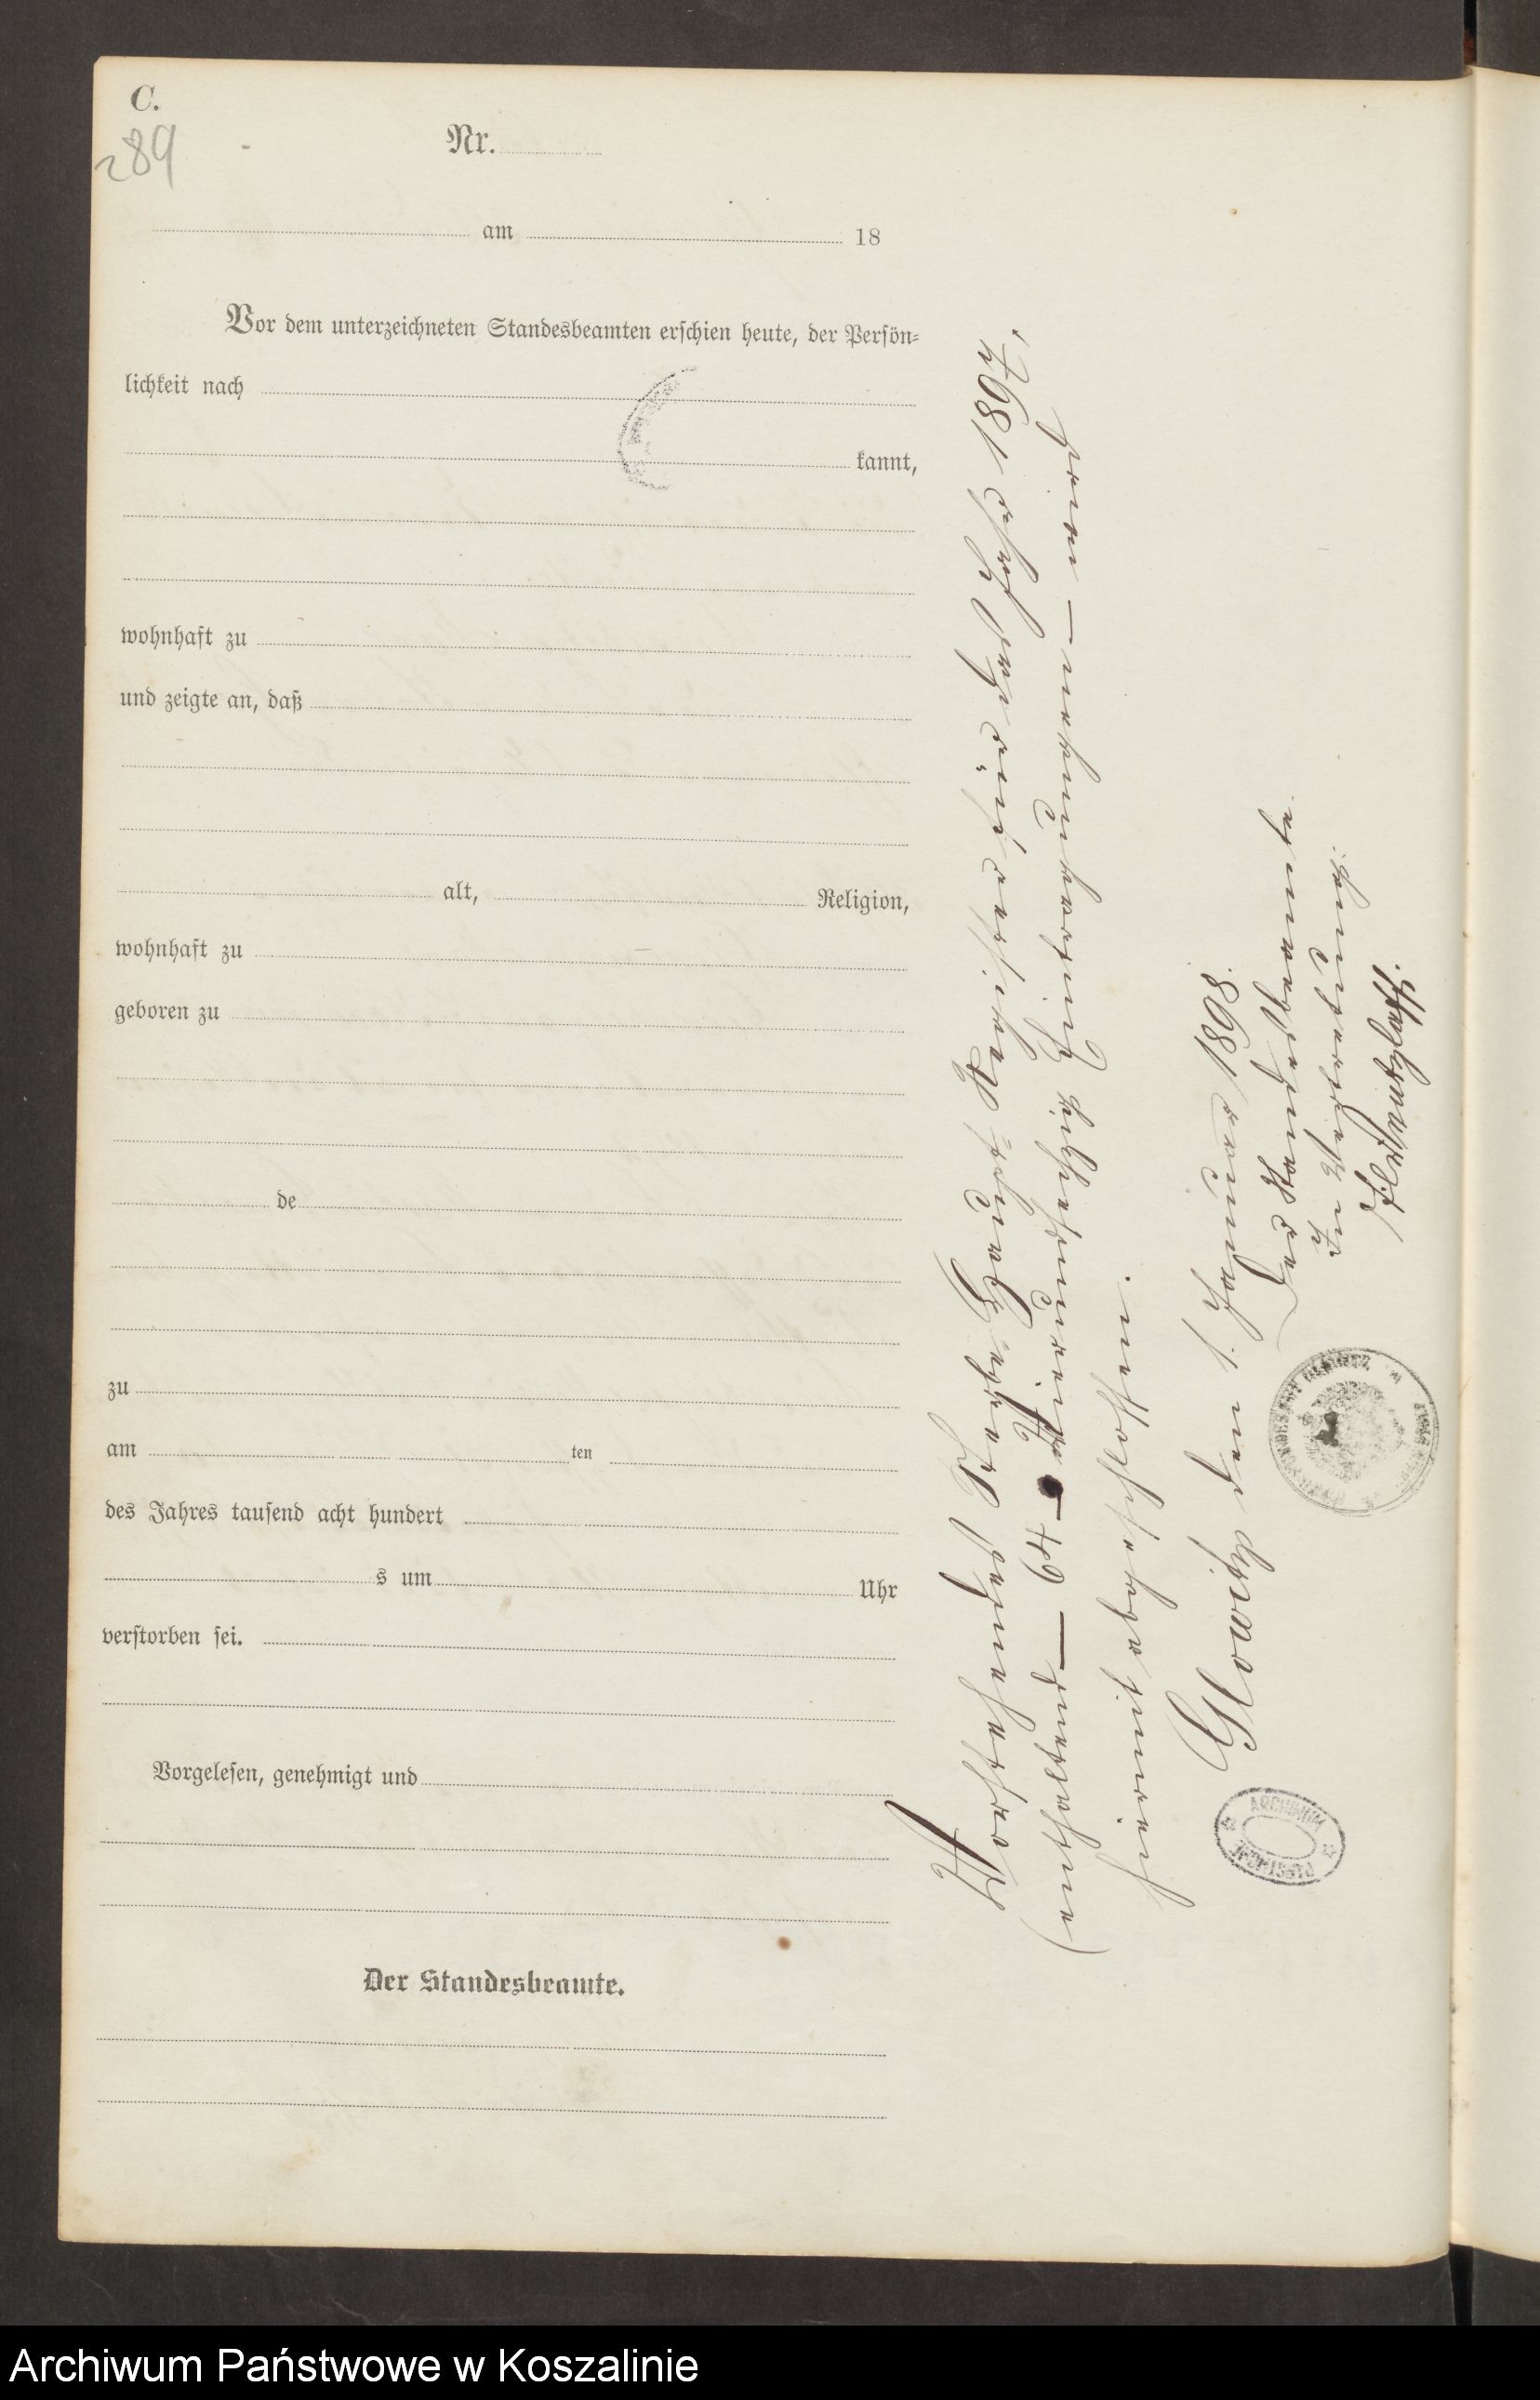 C.
289
Nr.
am 18
Vor dem unterzeichneten Standesbeamten erschien heute, der Persön-
lichkeit nach
kannt,
wohnhaft zu
und zeigte an, daß
alt, Religion,
wohnhaft zu
geboren zu
de
zu
am ten
des Jahres tausend acht hundert
s um Uhr
verstorben sei.
Vorgelesen, genehmigt und
Der Standesbeamte.
Vorstehendes Sterbe-Haupt-Register für das Jahr 1897,
(enthaltend — 64 — Eintragungen — wird
hiermit abgeschlossen.
Glowitz den 1. Januar 1898.
Der Standesbeamte
In Vertretung:
ARCHIWUM
PAŃSTWOWE
Archiwum Państwowe w Koszalinie